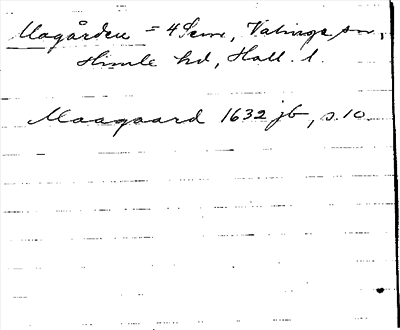 Magården = 4 Sem, Valinge sn,
Himle hd, Hall. l.
Maagaard 1632 jb, s. 10